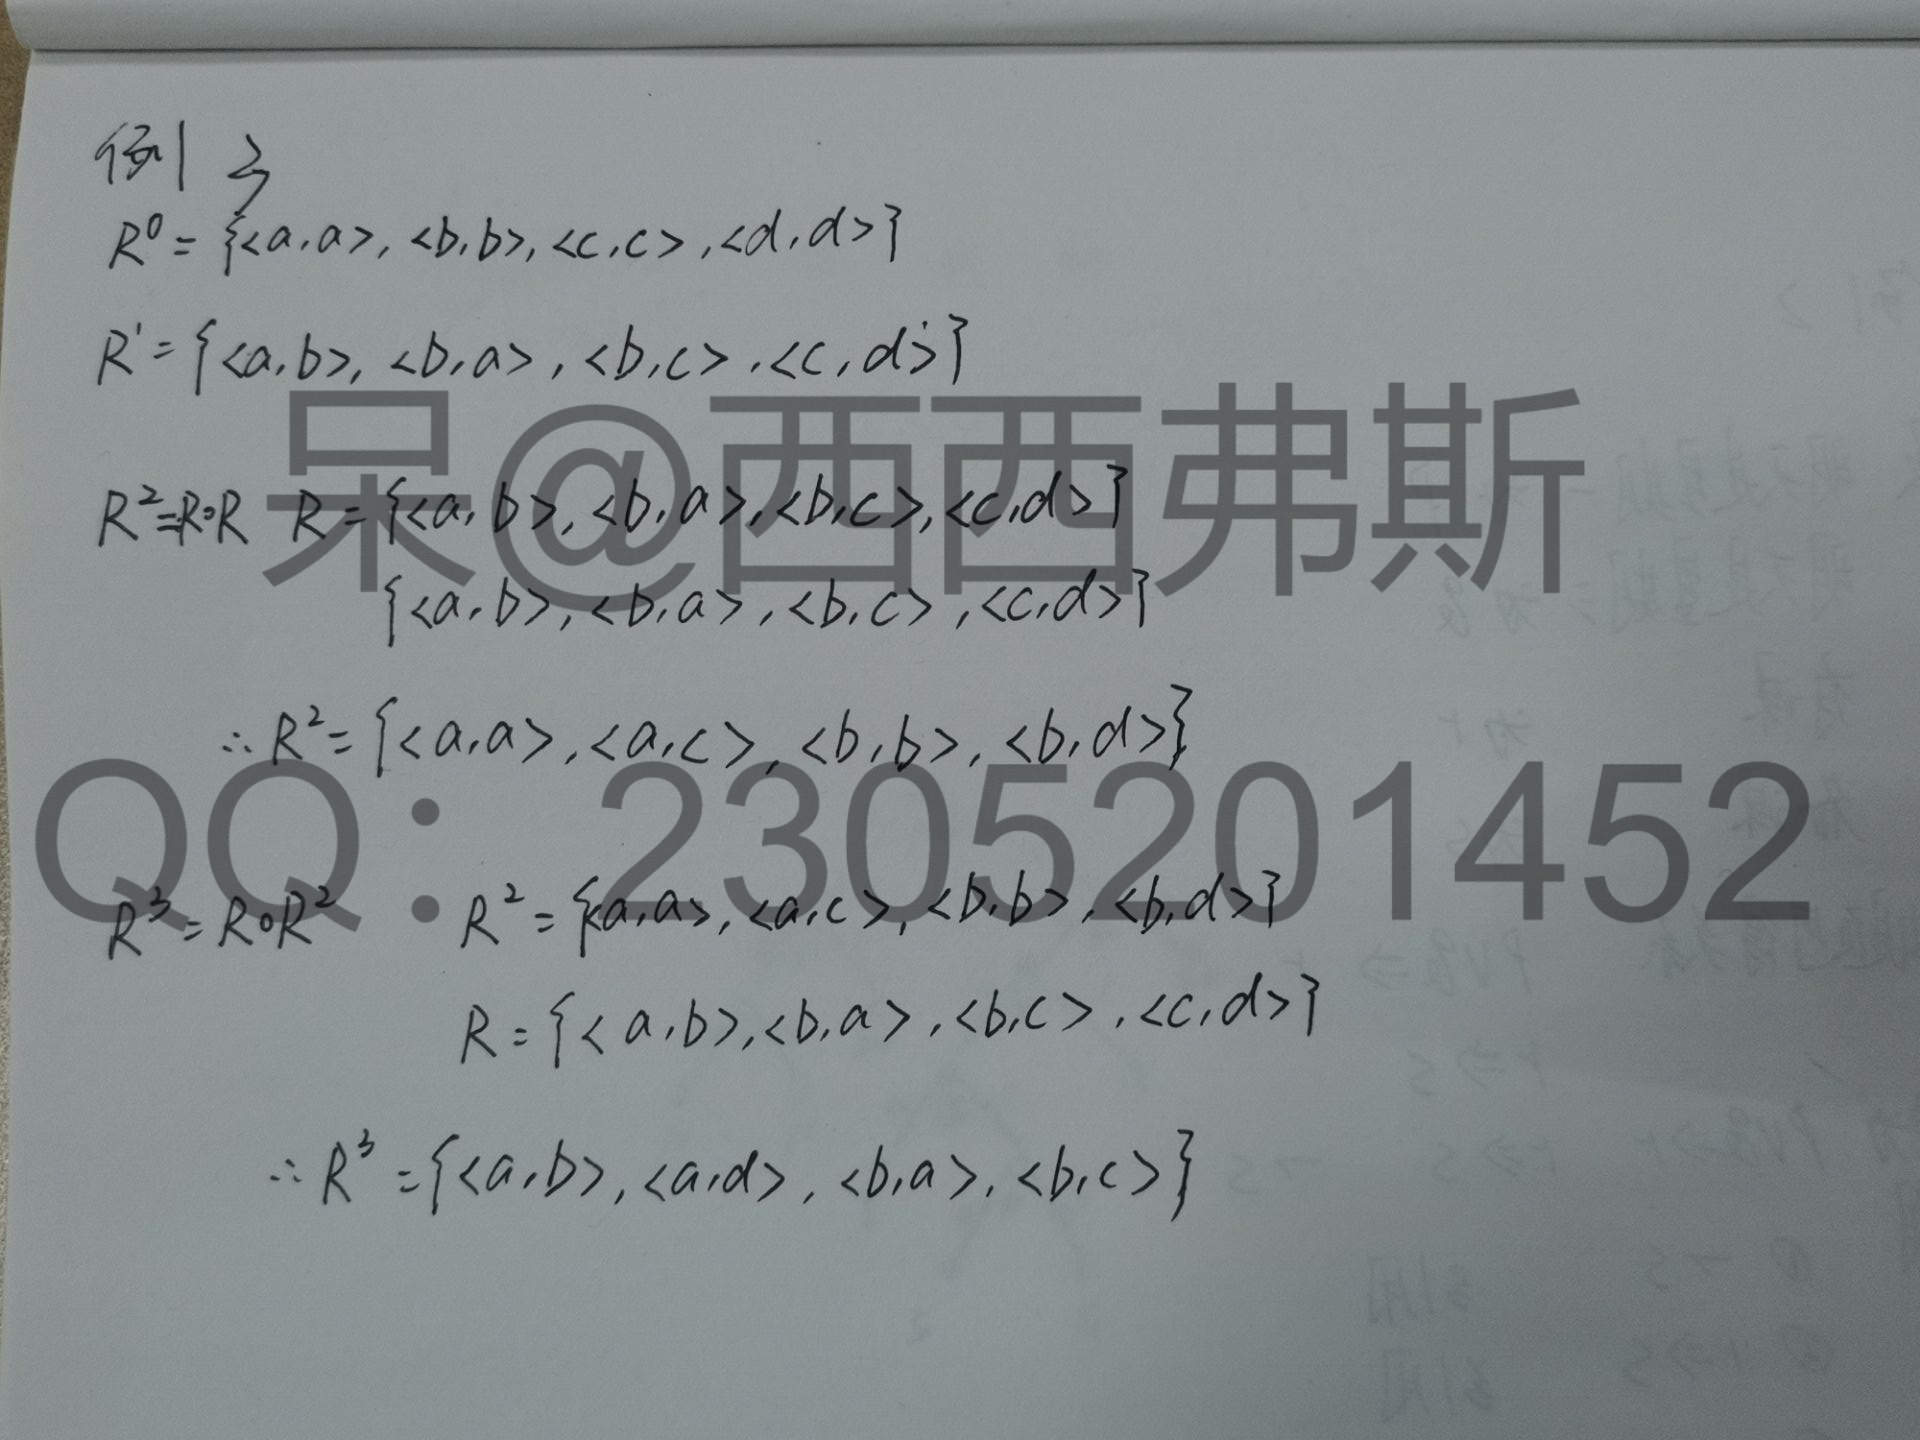 例 3
R⁰ = {<a,a>, <b,b>, <c,c>, <d,d>}
R¹ = {<a,b>, <b,a>, <b,c>, <c,d>}
呆@西西弗斯
R²=R∘R R = {<a,b>, <b,a>, <b,c>, <c,d>}
{<a,b>, <b,a>, <b,c>, <c,d>}
∴ R² = {<a,a>, <a,c>, <b,b>, <b,d>}
QQ：2305201452
R³ = R∘R² R² = {<a,a>, <a,c>, <b,b>, <b,d>}
R = {<a,b>, <b,a>, <b,c>, <c,d>}
∴ R³ = {<a,b>, <a,d>, <b,a>, <b,c>}